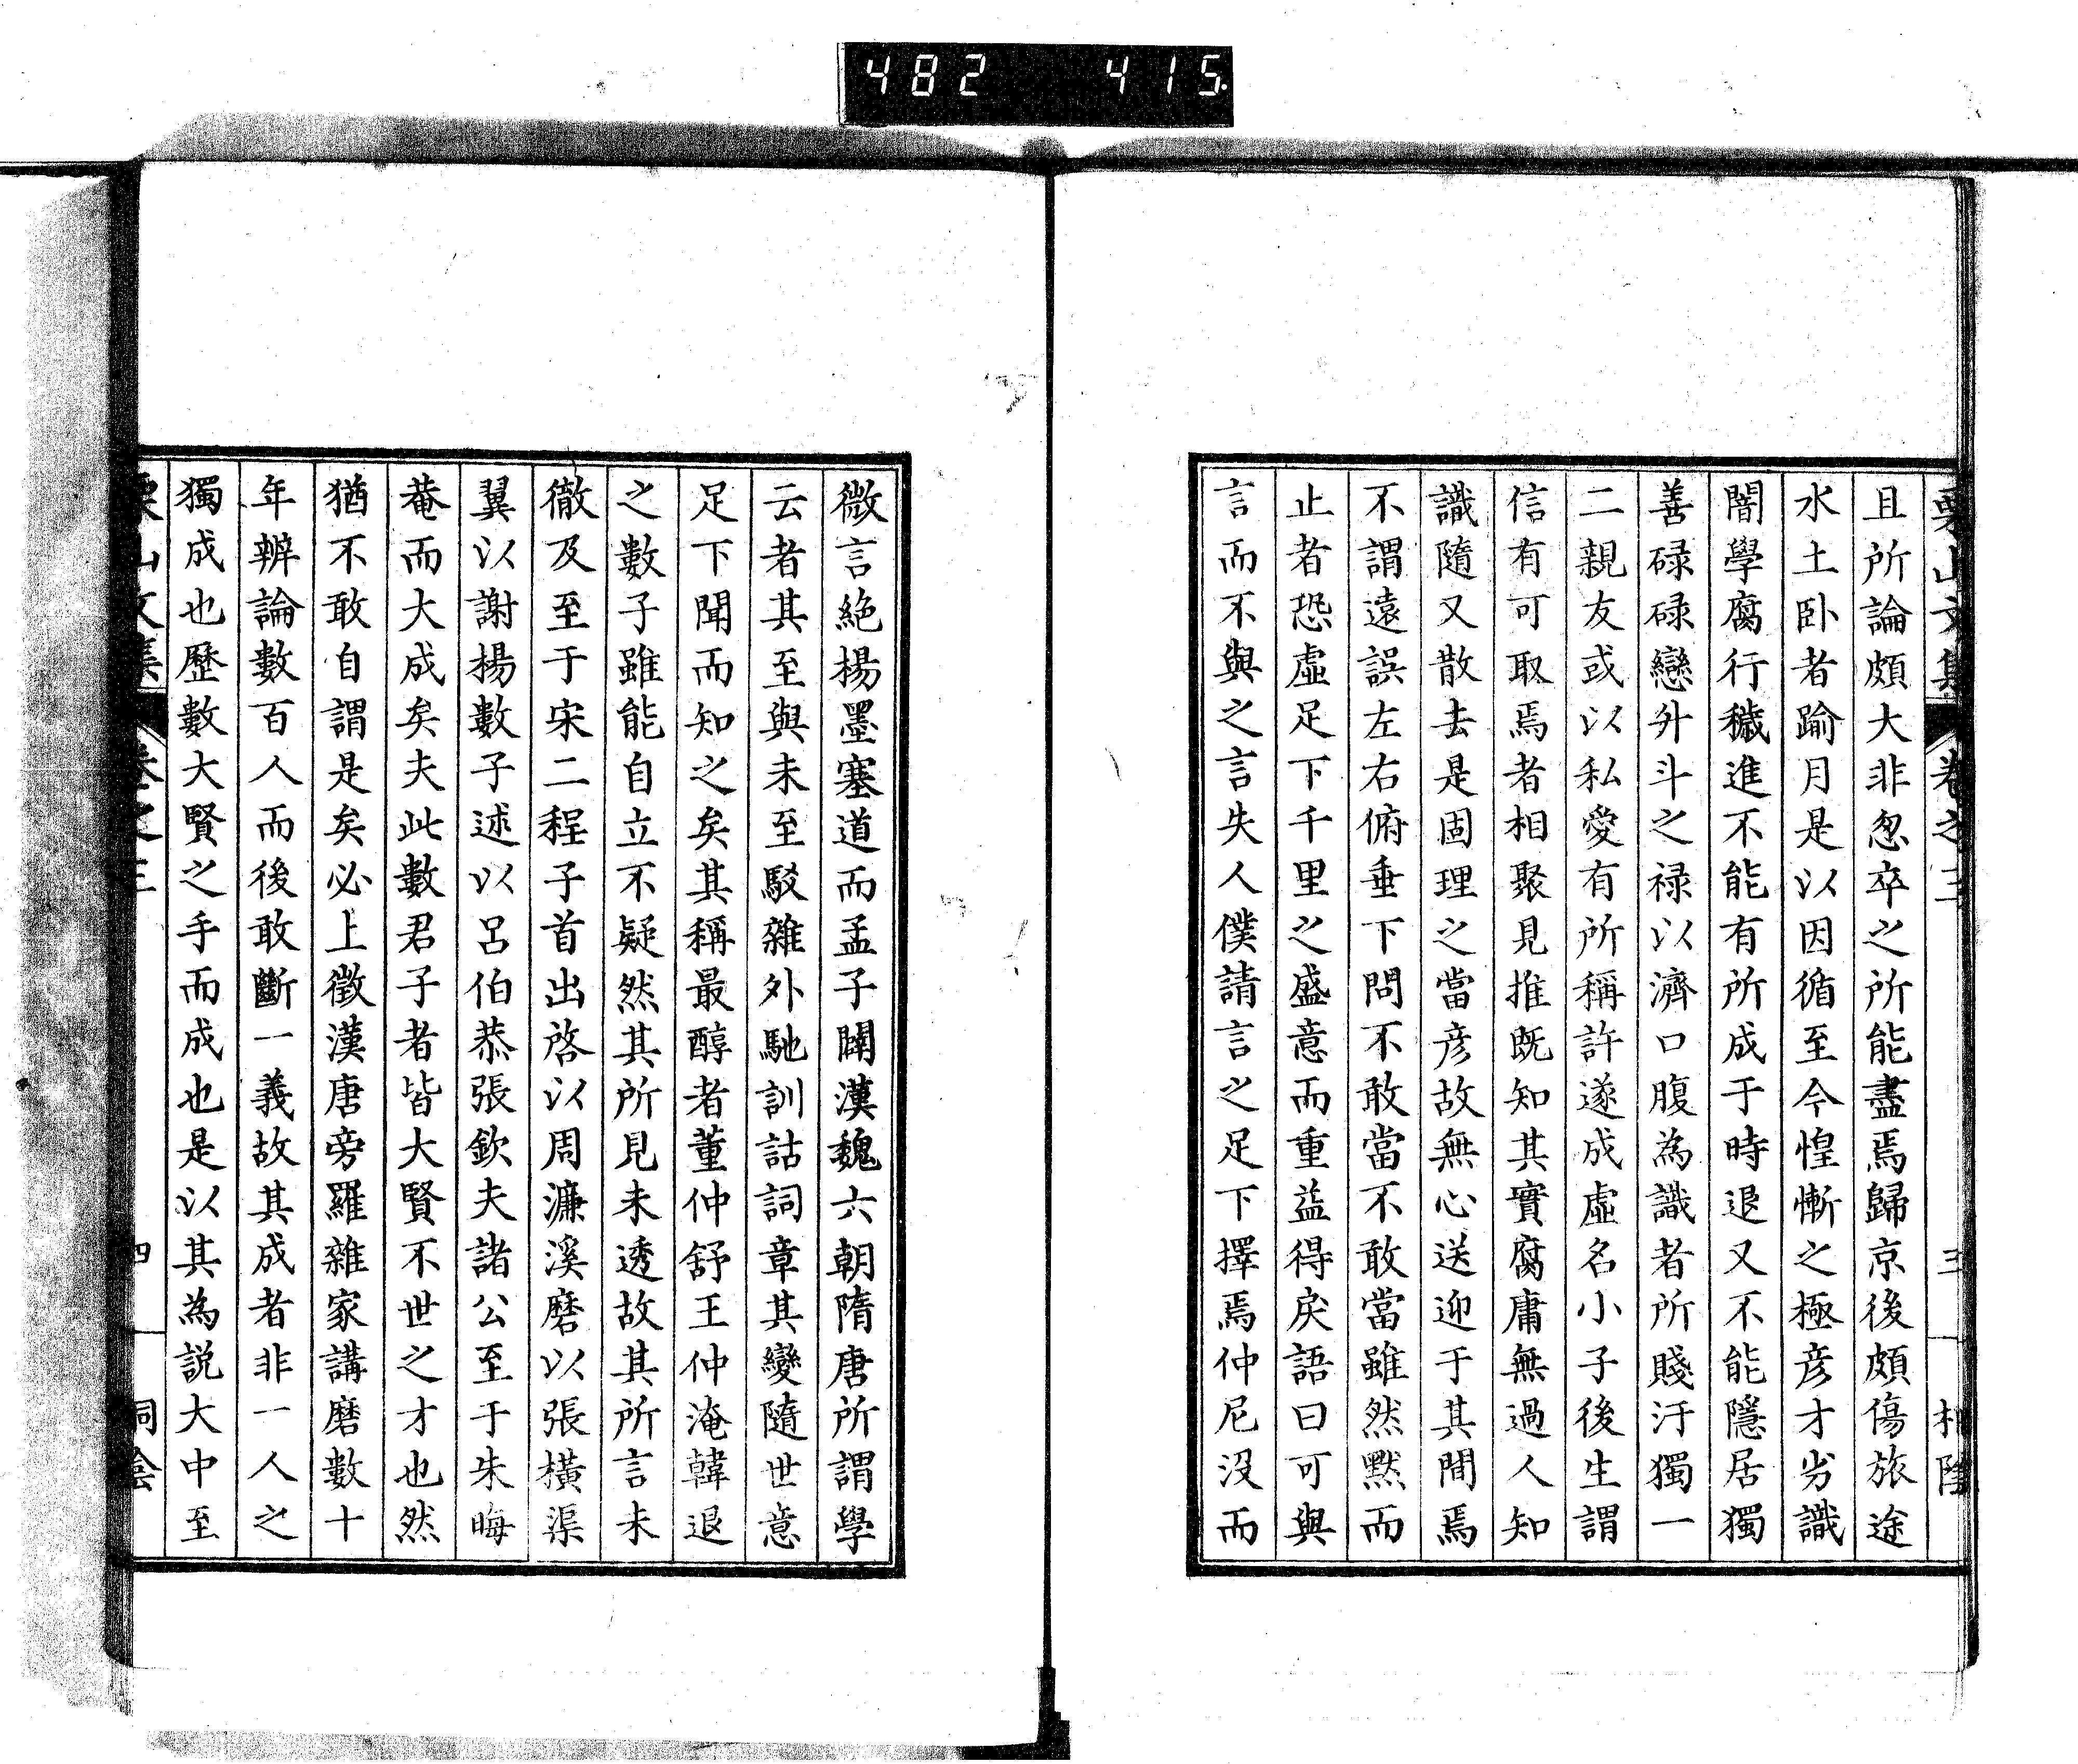 482 415
栗山文集 卷之三 三
且所論頗大非忽卒之所能盡焉歸京後頗傷旅途
水土卧者踰月是以因循至今惶慚之極彦才劣識
闇學腐行穢進不能有所成于時退又不能隱居獨
善碌碌戀升斗之禄以濟口腹為識者所賤汙獨一
二親友或以私愛有所稱許遂成虛名小子後生謂
信有可取焉者相聚見推既知其實腐庸無過人知
識隨又散去是固理之當彦故無心送迎于其間焉
不謂遠誤左右俯垂下問不敢當不敢當雖然黙而
止者恐虛足下千里之盛意而重益得戾語曰可與
言而不與之言失人僕請言之足下擇焉仲尼没而
微言絶楊墨塞道而孟子闢漢魏六朝隋唐所謂學
云者其至與未至駁雜外馳訓詁詞章其變隨世意
足下聞而知之矣其稱最醇者董仲舒王仲淹韓退
之數子雖能自立不疑然其所見未透故其所言未
徹及至于宋二程子首出啓以周濂溪磨以張橫渠
翼以謝楊數子述以呂伯恭張欽夫諸公至于朱晦
菴而大成矣夫此數君子者皆大賢不世之才也然
猶不敢自謂是矣必上徵漢唐旁羅雜家講磨數十
年辨論數百人而後敢斷一義故其成者非一人之
獨成也歷數大賢之手而成也是以其為説大中至
栗山文集 卷之三 四